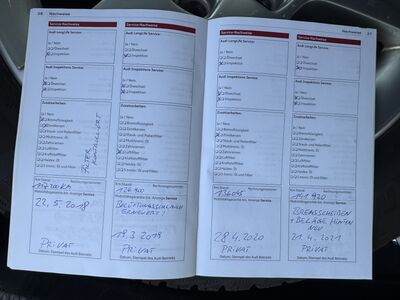 26 Nachweise
Service-Nachweise
Audi LongLife Service:
Ja / Nein
Ölwechsel
Inspektion
Audi Inspektions Service:
Ja / Nein
Ölwechsel
Inspektion
Zusatzarbeiten:
Ja / Nein
Bremsflüssigkeit
Zündkerzen
Staub- und Pollenfilter
Zahnriemen
Luftfilter
Kraftstofffilter
Haldex: Öl
FILTER KONTROLLIERT
Km-Stand
117200 KM
Mobilitätsgarantie bis Anzeige Service
22.5.2018
PRIVAT
Datum, Stempel des Audi Betriebs
Audi LongLife Service:
Ja / Nein
Ölwechsel
Inspektion
Audi Inspektions Service:
Ja / Nein
Ölwechsel
Inspektion
Zusatzarbeiten:
Ja / Nein
Bremsflüssigkeit
Zündkerzen
Staub- und Pollenfilter
Zahnriemen
Luftfilter
Kraftstofffilter
Haldex: Öl und Filter
Km-Stand
126.900
Mobilitätsgarantie bis Anzeige Service
19.3.2019
PRIVAT
Datum, Stempel des Audi Betriebs
Nachweise 27
Service-Nachweise
Audi LongLife Service:
Ja / Nein
Ölwechsel
Inspektion
Audi Inspektions Service:
Ja / Nein
Ölwechsel
Inspektion
Zusatzarbeiten:
Ja / Nein
Bremsflüssigkeit
Zündkerzen
Staub- und Pollenfilter
Zahnriemen
Luftfilter
Kraftstofffilter
Km-Stand
136045
Mobilitätsgarantie bis Anzeige Service
28.4.2020
PRIVAT
Datum, Stempel des Audi Betriebs
Audi LongLife Service:
Ja / Nein
Ölwechsel
Inspektion
Audi Inspektions Service:
Ja / Nein
Ölwechsel
Inspektion
Zusatzarbeiten:
Ja / Nein
Bremsflüssigkeit
Zündkerzen
Staub- und Pollenfilter
Zahnriemen
Luftfilter
Kraftstofffilter
Km-Stand
141920
Mobilitätsgarantie bis Anzeige Service
BREMSSCHEIBEN
+ BELÄGE HINTEN
NEU
21.4.2021
PRIVAT
Datum, Stempel des Audi Betriebs